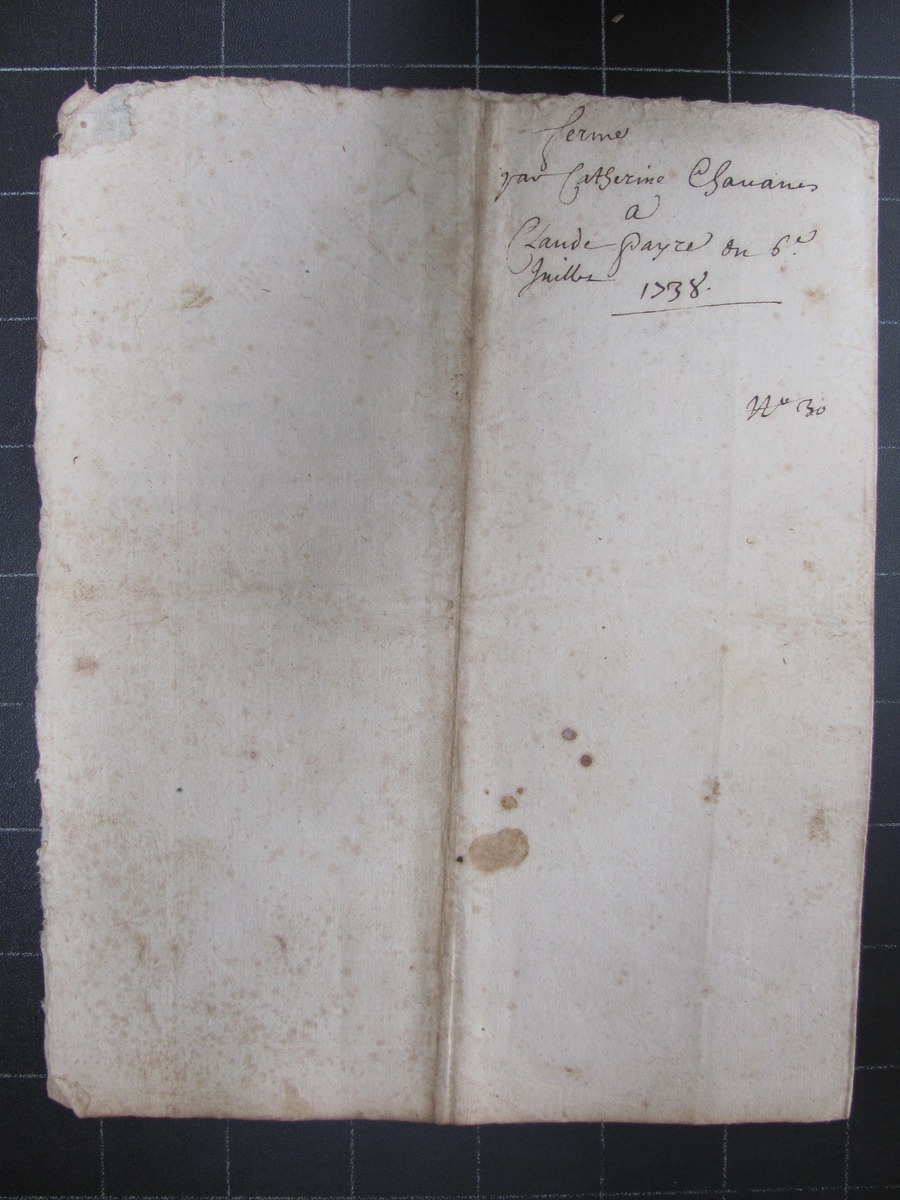 ferme
par Catherine Chauanes
a
Claude payre du 6.e
Juillet
1738.
No 30